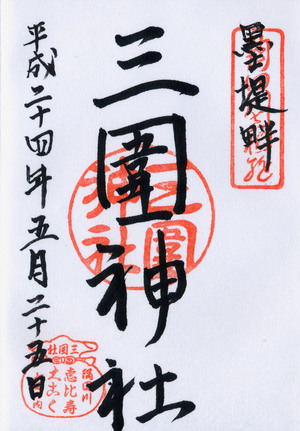 墨堤畔
三囲神社
平成二十四年五月二十五日
三囲神社
三囲社
隅田川
恵比寿
大こく
内